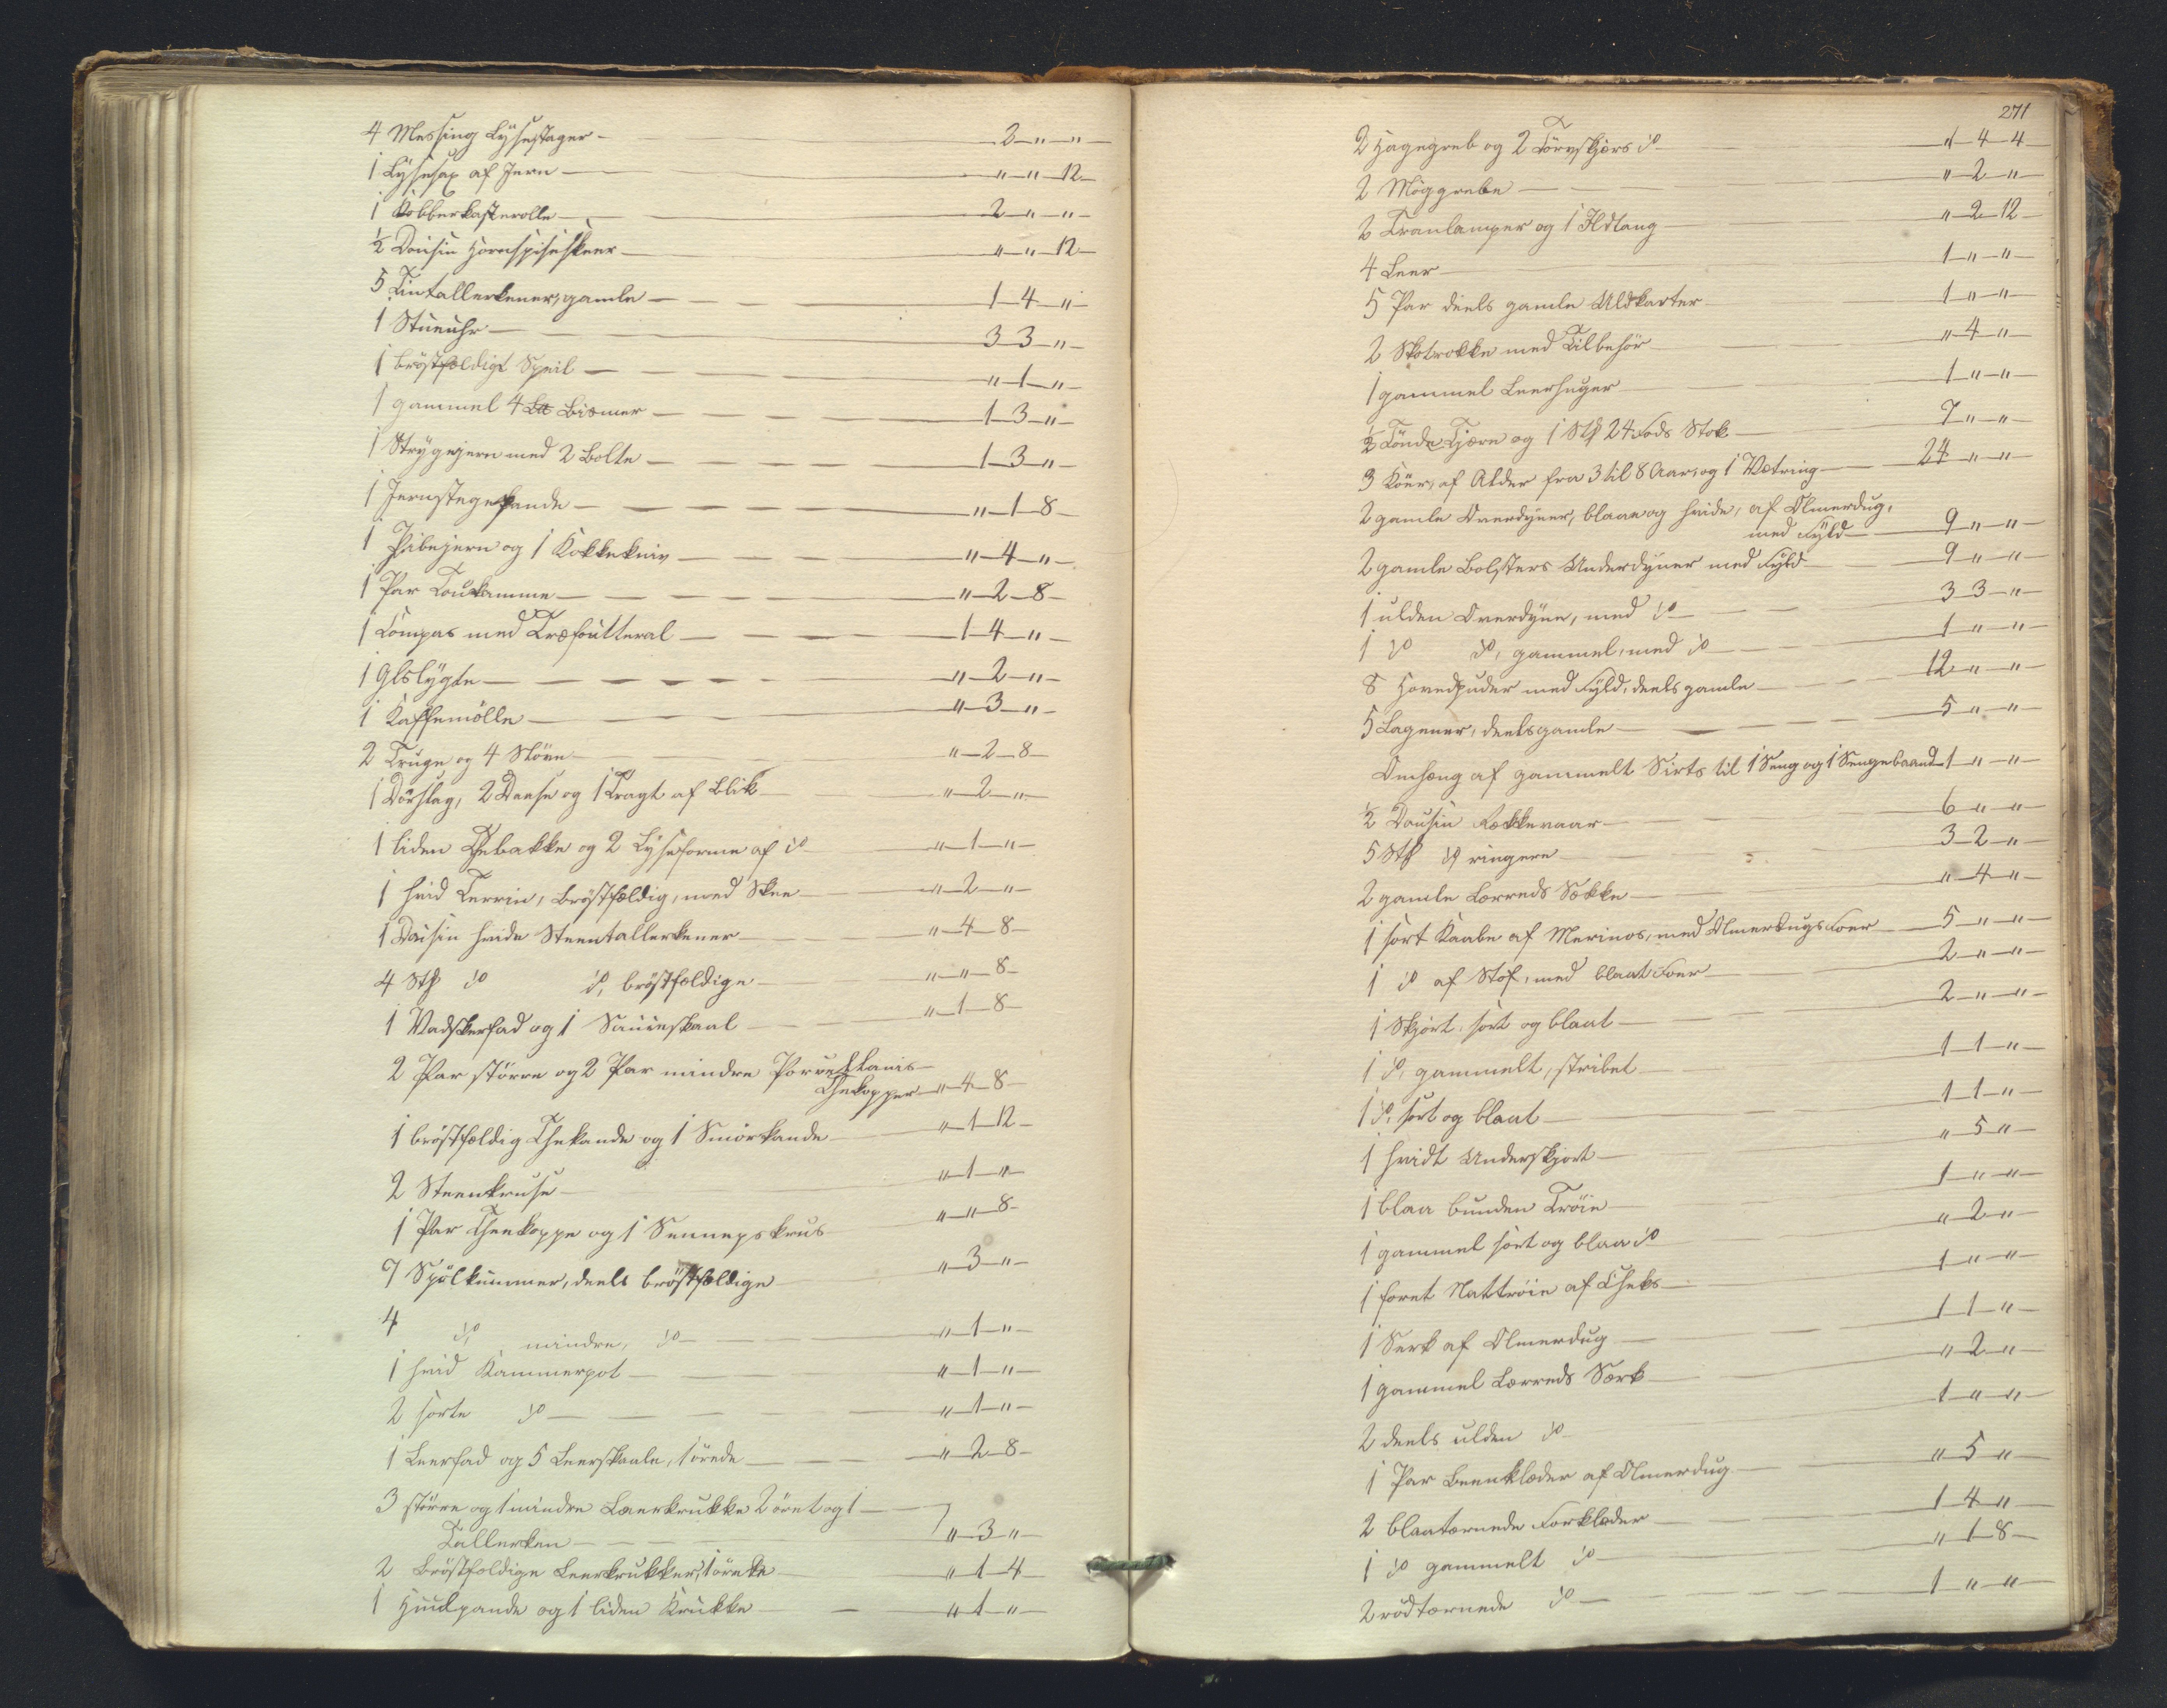 4 Messing Lysestager - 2 - " - "
1 Lysesax af Jern - " - " - 12
1 Kobberkasterolle - 2 - " - "
½ Dousin Hornspiseskeer - " - " - 12
5 Tintallerkener, gamle - 1 - 4 - "
1 Stueuhr - 3 - 3 - "
1 brøstfældigt Speil - " - 1 - "
1 gammel 4 Bismer - 1 - 3 - "
1 Strygejern med 2 Bolte - 1 - 3 - "
1 Jernstegepande - " - 1 - 8
1 Pibejern og 1 Kokkekniv - " - 4 - "
1 Par Toukamme - " - 2 - 8
1 Compas med Træfoutteral - 1 - 4 - "
1 Glslygte - " - 2 - "
1 Kaffemølle - " - 3 - "
2 Truge og 4 - " - 2 - 8
1 Dørslag, 2 Daase og 1 Tragt af Blik - " - 2 - "
1 liden Thebakke og 2 Lyseforme af do - " - 1 - "
1 hvid Terrin, brøstfældig, med Skee - " - 2 - "
1 Dousin hvide Steentallerkener - " - 4 - 8
4 Stk do do, brøstfældige - " - " - 8
1 Vadskerfad og 1 Sauceskaal - " - 1 - 8
2 Par større og 2 Par mindre Porcellains-
Thekopper - " - 4 - 8
1 brøstfældig Thekande og 1 Smørkande - " - 1 - 12
2 Steenkruse - " - 1 - "
1 Par Theekoppe og 1 Sennepskrus - " - " - 8
7 Spølkummer, deels brøstfældige - " - 3 - "
4 do, mindre, do - " - 1 - "
1 hvid Kammerpot - " - 1 - "
2 sorte do - " - 1 - "
1 Leerfad og 5 Leerskaale, 1 ørede - " - 2 - 8
3 større og 1 mindre Leerkrukke 2 øret og 1
Tallerken - " - 3 - "
2 Brøstfældige Leerkrukker, 1 - " - 1 - 4
1 og 1 liden Krukke - " - 1 - "
271
2 Hagegreb og 2 do - " - 4 - 4
2 Møggrebe - " - 2 - "
2 Tranlamper og 1 Ildtang - " - 2 - 12
4 Leer - 1 - " - "
5 Par deels gamle Uldkarter - 1 - " - "
2 Skotrokke med Tilbehør - " - 4 - "
1 gammel - 1 - " - "
½ Tønde Tjære og 1 Stk 24 Fods Stok - 7 - " - "
3 Køer, af Alder fra 3 til 8 Aar, og 1 Vetring - 24 - " - "
2 gamle Overdyner, blaae og hvide, af Olmerdug,
med Fyld - 9 - " - "
2 gamle Bolsters Underdyner med Fyld - 9 - " - "
1 ulden Overdyne, med do - 3 - 3 - "
1 do do, gammel, med do - 1 - " - "
8 Hovedpuder med Fyld, deels gamle - 12 - " - "
5 Lagener, deels gamle - 5 - " - "
Omhæng af gammelt Sirts til 1 Seng og 1 Sengebaand - 1 - " - "
½ Dousin Dækkevaar - 6 - " - "
5 Stk do ringere - 3 - 2 - "
2 gamle Lærreds Sække - " - 4 - "
1 sort Kaabe af Merinos, med Olmerdugs Foer - 5 - " - "
1 do af Stof, med blaat Foer - 2 - " - "
1 Skjørt, sort og blaat - 2 - " - "
1 do, gammelt, stribet - 1 - 1 - "
1 do, sort og blaat - 1 - 1 - "
1 hvidt Underskjørt - " - 5 - "
1 blaa bunden Trøie - 1 - " - "
1 gammel sort og blaa do - " - 2 - "
1 foret Nattrøie af - 1 - " - "
1 Serk af Olmerdug - 1 - 1 - "
1 gammel Lærreds Særk - " - 2 - "
2 deels ulden do - 1 - " - "
1 Par Beenklæder af Olmerdug - " - 5 - "
2 blaatærnede Forklæder - 1 - 4 - "
1 do gammelt do - " - 1 - 8
2 rødtærnede do - 1 - " - "